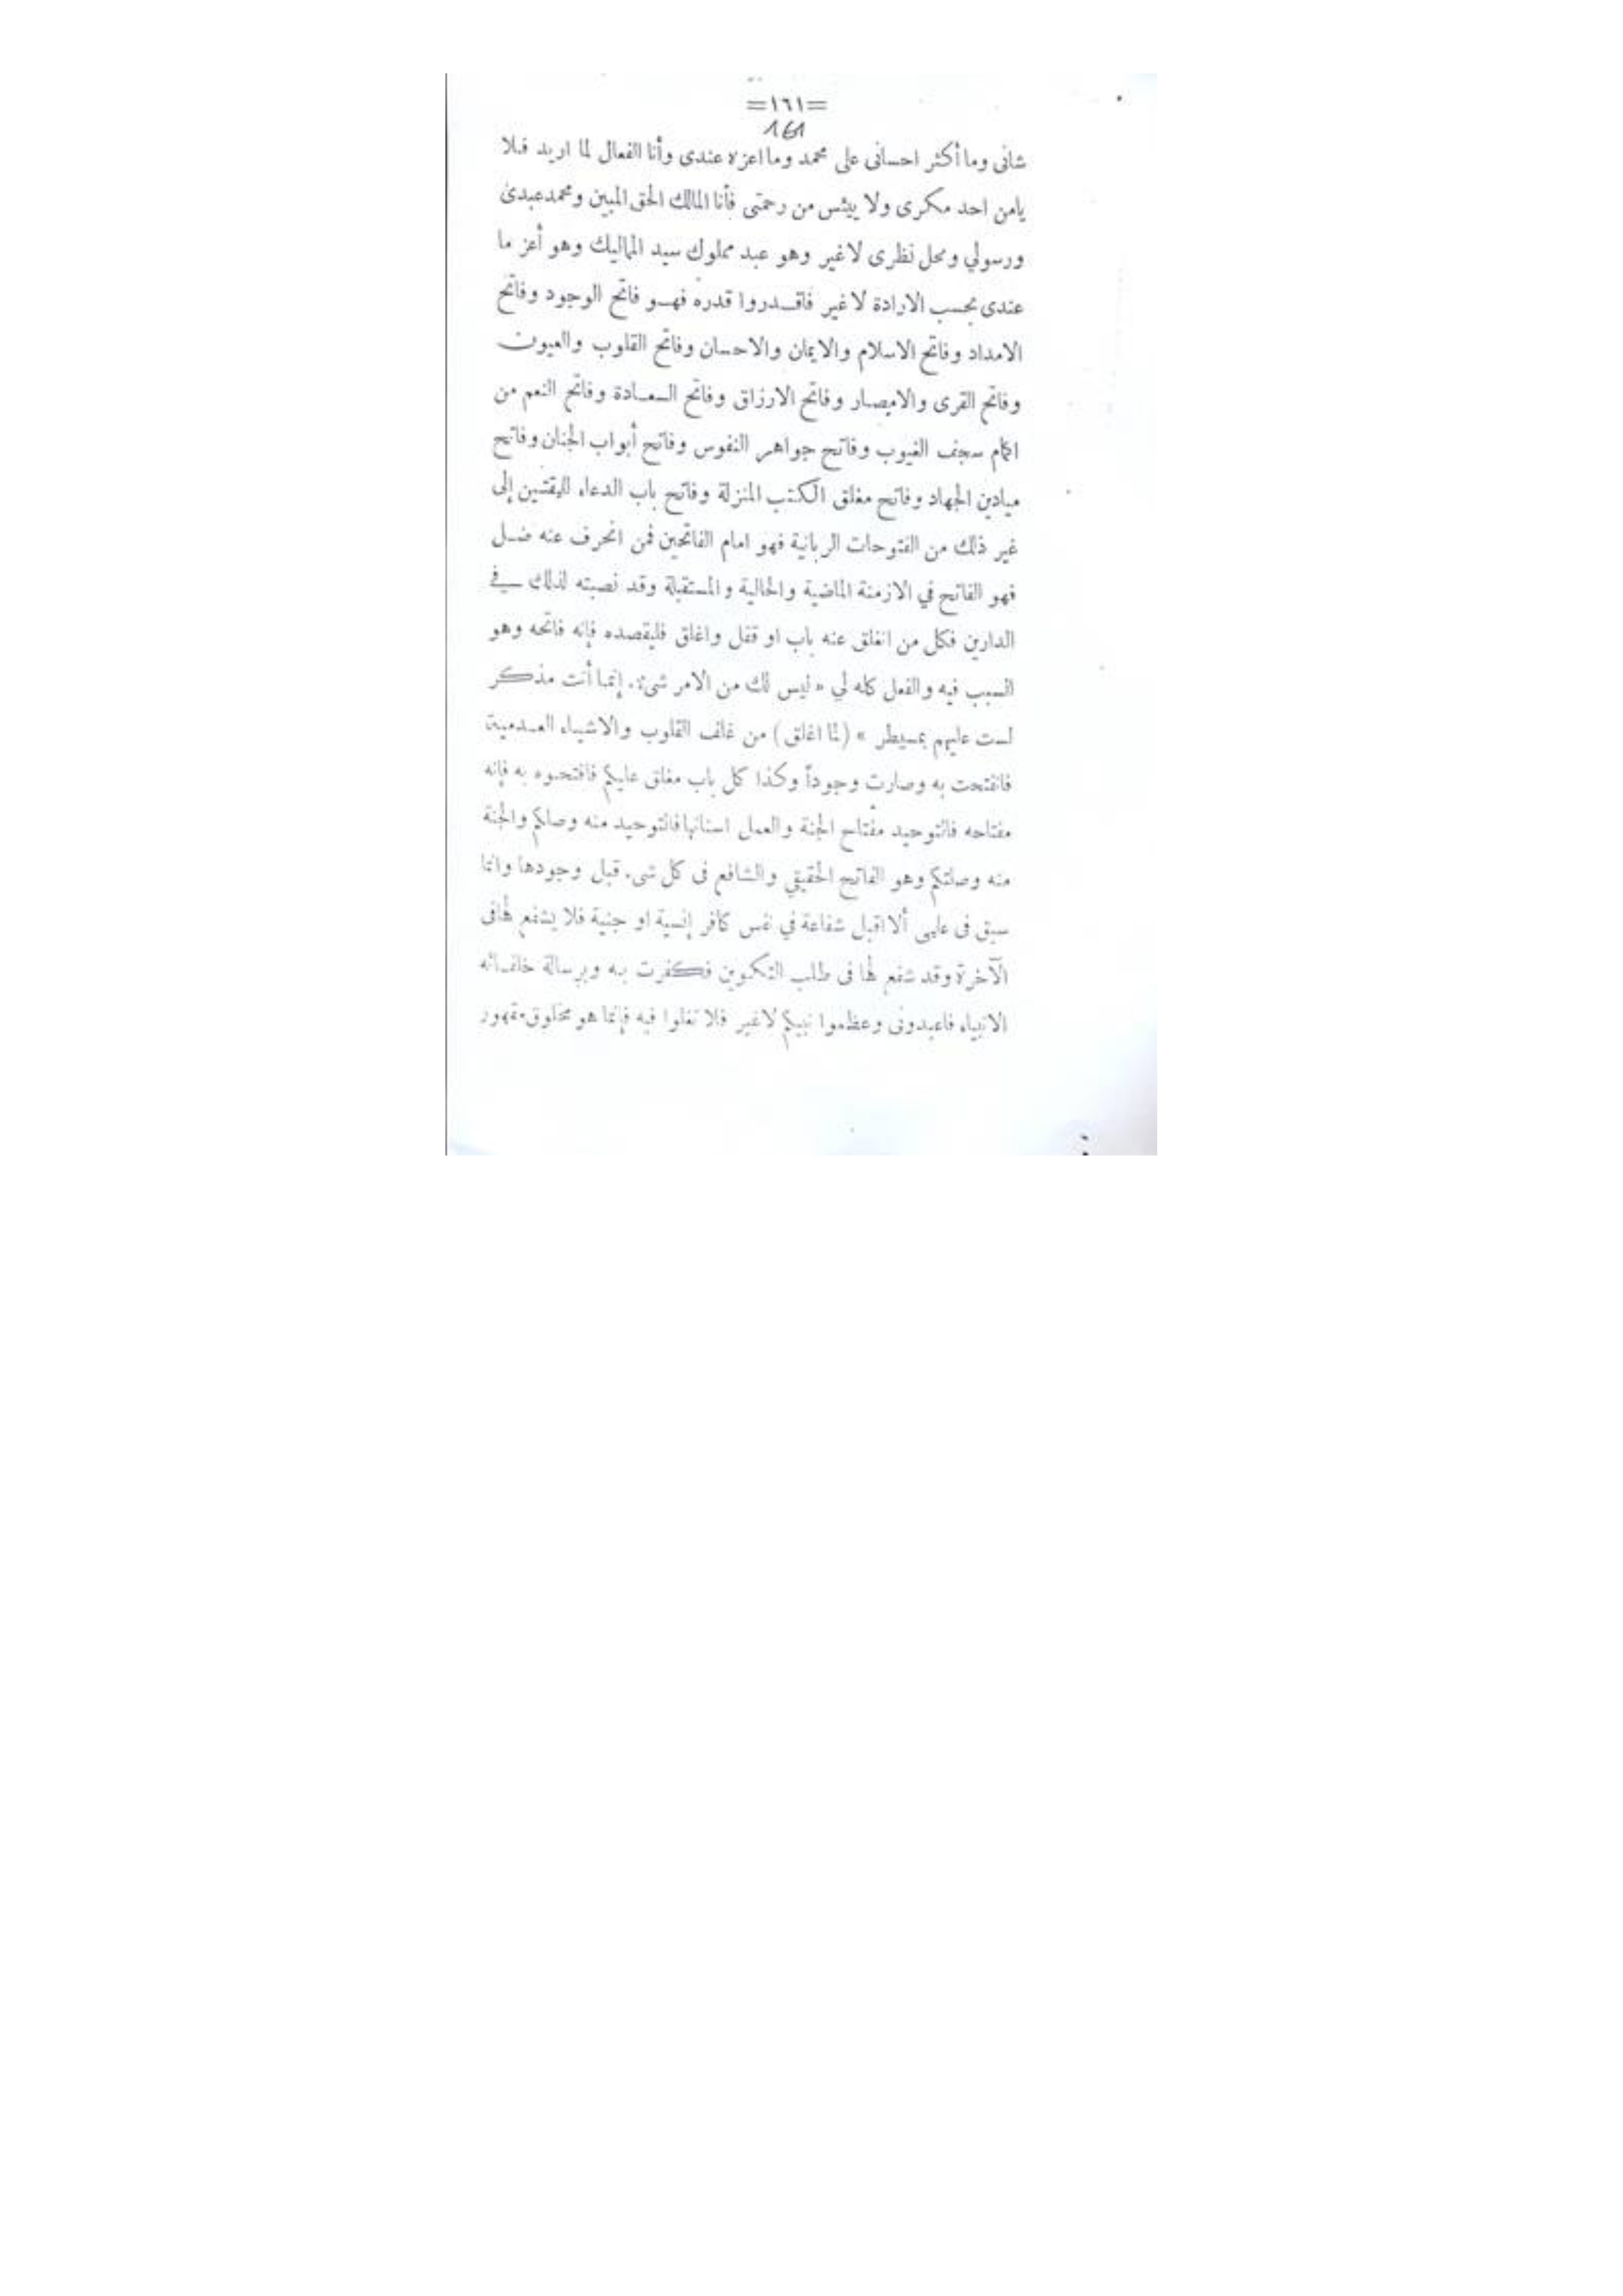 =١٦١=
161
شانى وما أكثر احسانى على محمد وما اعزه عندى وأنا الفعال لما اريد فلا
يامن احد مكرى ولا ييئس من رحمتى فأنا المالك الحق المبين ومحمد عبدى
ورسولي ومحل نظرى لا غير وهو عبد مملوك سيد المماليك وهو أعز ما
عندى بحسب الارادة لا غير فاقدروا قدره فهو فاتح الوجود وفاتح
الامداد وفاتح الاسلام والايمان والاحسان وفاتح القلوب والعيون
وفاتح القرى والامصار وفاتح الارزاق وفاتح السعادة وفاتح النعم من
اكمام سجف الغيوب وفاتح جواهر النفوس وفاتح أبواب الجنان وفاتح
ميادين الجهاد وفاتح مغلق الكتب المنزلة وفاتح باب الدعاء لليقشين إلى
غير ذلك من الفتوحات الربانية فهو امام الفاتحين فمن انحرف عنه ضل
فهو الفاتح في الازمنة الماضية والحالية والمستقبلة وقد نصبته لذلك في
الدارين فكل من انغلق عنه باب او قفل واغلق فليقصده فإنه فاتحه وهو
السبب فيه والفعل كله لي « ليس لك من الامر شىء. إنما أنت مذكر
لست عليهم بمسيطر » (لما اغلق) من غلف القلوب والاشياء العدمية
فانفتحت به وصارت وجوداً وكذا كل باب مغلق عليكم فافتحوه به فإنه
مفتاحه فالتوحيد مفتاح الجنة والعمل اسنانها فالتوحيد منه وصلكم والجنة
منه وصلتكم وهو الفاتح الحقيقي والشافع فى كل شىء قبل وجودها وانما
سبق فى علمى ألا اقبل شفاعة في نفس كافر إنسية او جنية فلا يشفع لها فى
الآخرة وقد شفع لها فى طلب التكوين فكفرت به وبرسالة خلفائه
الانبياء فاعبدونى وعظموا نبيكم لا غير فلا تغلوا فيه فإنما هو مخلوق مقهور